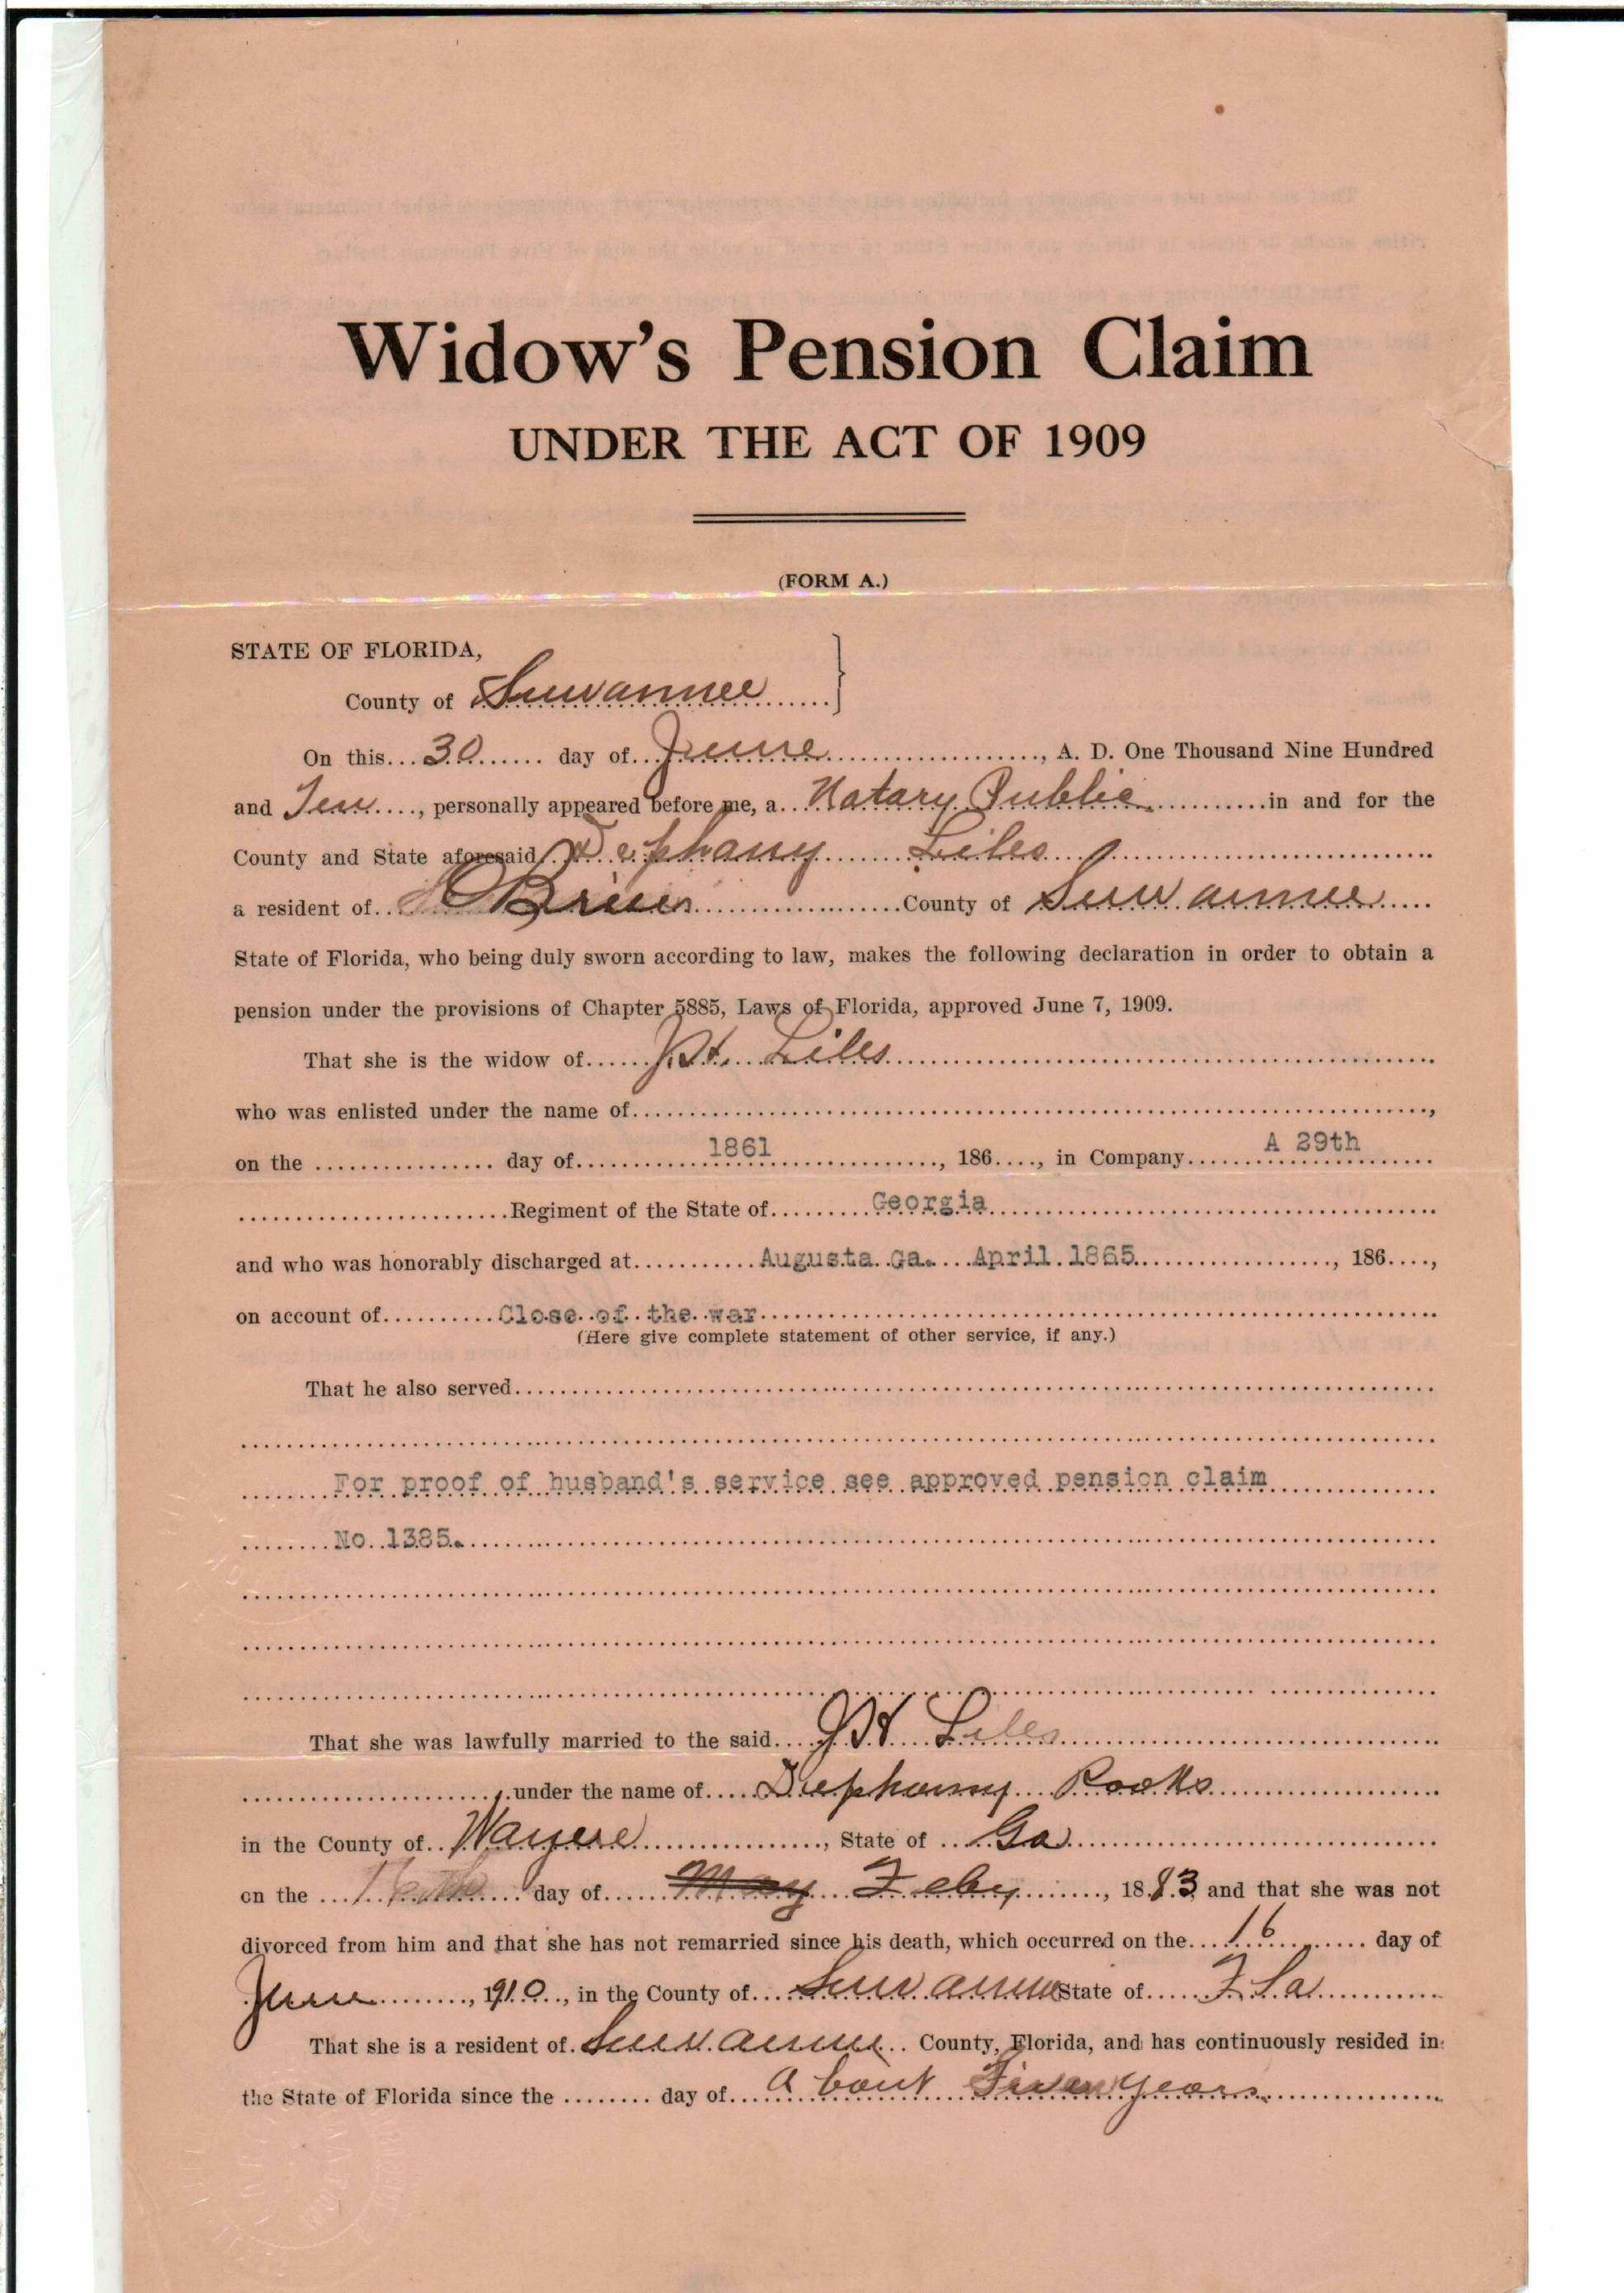 Widow's Pension Claim
UNDER THE ACT OF 1909
(FORM A.)
STATE OF FLORIDA,
County of Suwannee
On this 30 day of June, A. D. One Thousand Nine Hundred
and Ten, personally appeared before me, a Notary Public in and for the
County and State aforesaid Dephany Liles
a resident of O Brien County of Suwannee
State of Florida, who being duly sworn according to law, makes the following declaration in order to obtain a
pension under the provisions of Chapter 5885, Laws of Florida, approved June 7, 1909.
That she is the widow of Liles
who was enlisted under the name of,
on the day of 1861, 186, in Company A 29th
Regiment of the State of Georgia
and who was honorably discharged at Augusta Ga. April 1865, 186,
on account of Close of the war
(Here give complete statement of other service, if any.)
That he also served
For proof of husband's service see approved pension claim
No. 1385.
That she was lawfully married to the said Liles
under the name of Dephanny Rooks
in the County of Wayne, State of Ga
on the day of May Feby, 1883 and that she was not
divorced from him and that she has not remarried since his death, which occurred on the 16 day of
June, 1910, in the County of Suwannee State of Fla
That she is a resident of Suwannee County, Florida, and has continuously resided in
the State of Florida since the day of About years